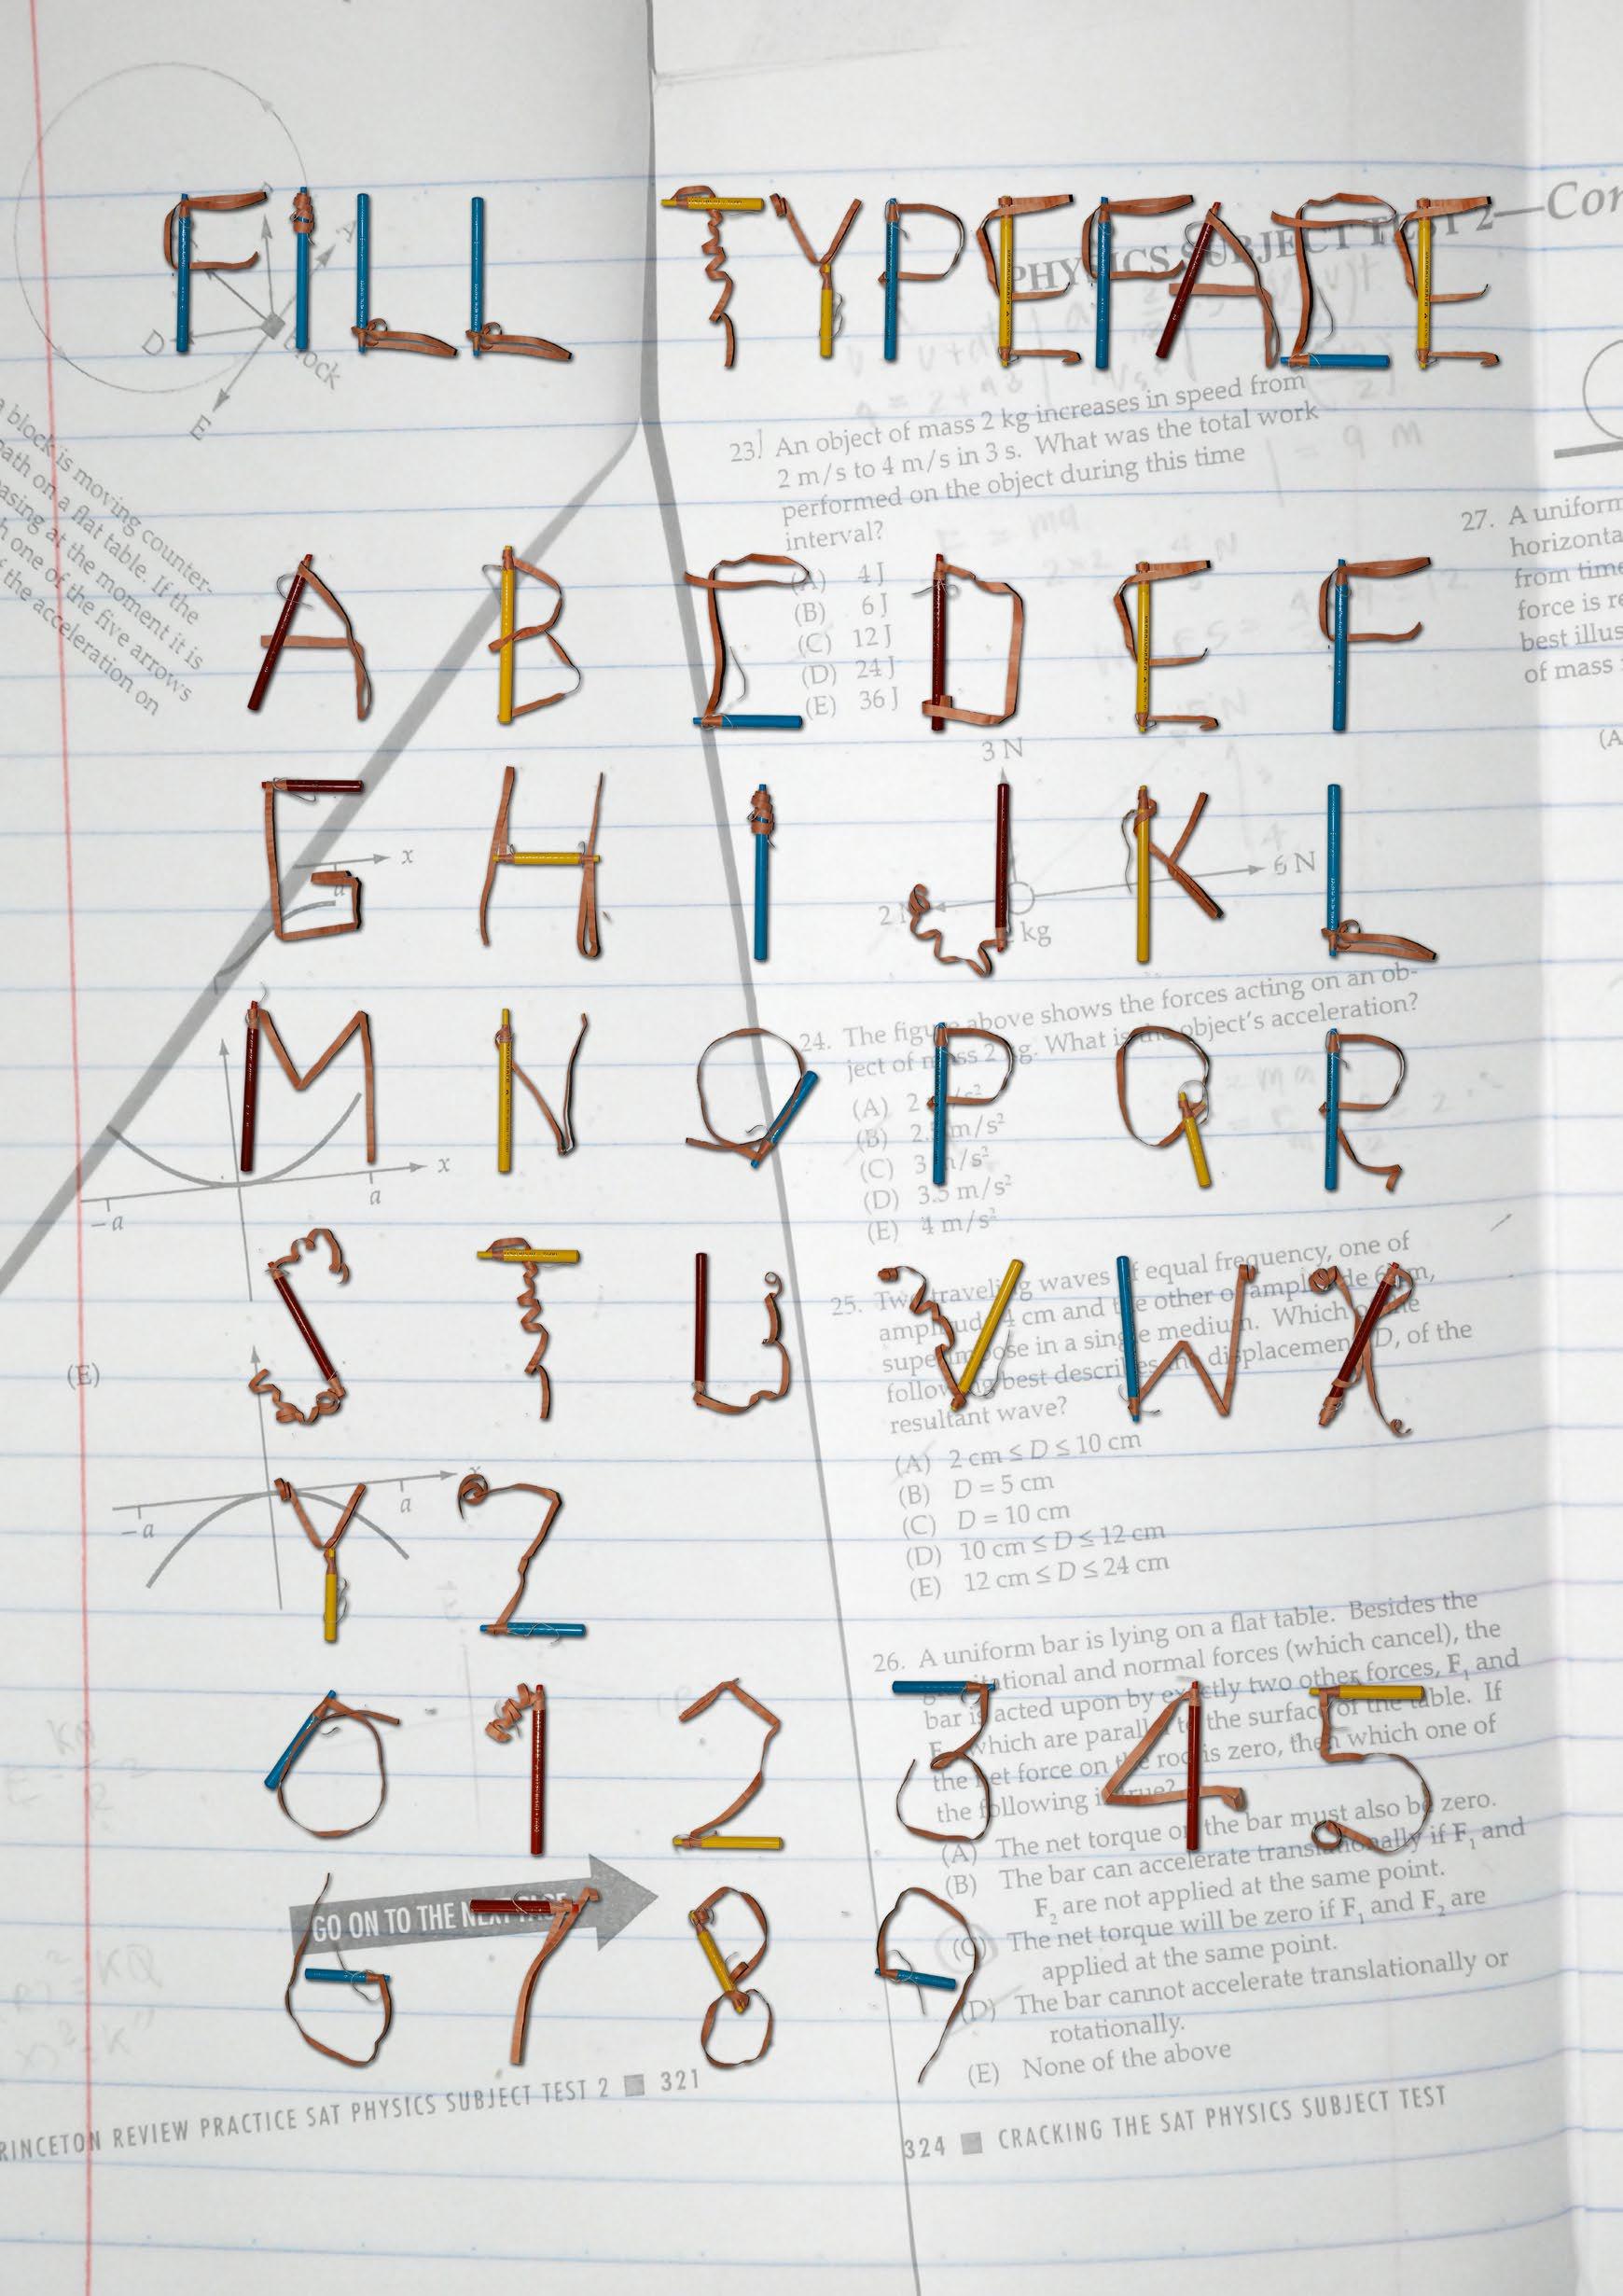 FILL TYPEFACE
PHYSICS SUBJECT TEST 2—Con
A
D
E
block
a block is moving counter-
path on a flat table. If the
asing at the moment it is
h one of the five arrows
f the acceleration on
23. An object of mass 2 kg increases in speed from
2 m/s to 4 m/s in 3 s. What was the total work
performed on the object during this time
interval?
(A) 4 J
(B) 6 J
(C) 12 J
(D) 24 J
(E) 36 J
27. A uniform
horizonta
from time
force is re
best illus
of mass
(A
A B C D E F
3 N
G H I J K L
x
a
6 N
kg
24. The figure above shows the forces acting on an ob-
ject of mass 2 kg. What is the object's acceleration?
(A) 2 m/s²
(B) m/s²
(C) 3 m/s²
(D) 3.5 m/s²
(E) 4 m/s²
M N O P Q R
x
-a
a
25. Two traveling waves of equal frequency, one of
amplitude 4 cm and the other of amplitude 6 cm,
superimpose in a single medium. Which of the
following best describes the displacement, D, of the
resultant wave?
(A) 2 cm ≤ D ≤ 10 cm
(B) D = 5 cm
(C) D = 10 cm
(D) 10 cm ≤ D ≤ 12 cm
(E) 12 cm ≤ D ≤ 24 cm
S T U V W X
(E)
x
-a
a
Y Z
26. A uniform bar is lying on a flat table. Besides the
gravitational and normal forces (which cancel), the
bar is acted upon by exactly two other forces, F₁ and
F₂, which are parallel to the surface of the table. If
the net force on the rod is zero, then which one of
the following is true?
(A) The net torque on the bar must also be zero.
(B) The bar can accelerate translationally if F₁ and
F₂ are not applied at the same point.
(C) The net torque will be zero if F₁ and F₂ are
applied at the same point.
(D) The bar cannot accelerate translationally or
rotationally.
(E) None of the above
0 1 2 3 4 5
6 7 8 9
GO ON TO THE NEXT PAGE
RINCETON REVIEW PRACTICE SAT PHYSICS SUBJECT TEST 2 ■ 321
324 ■ CRACKING THE SAT PHYSICS SUBJECT TEST